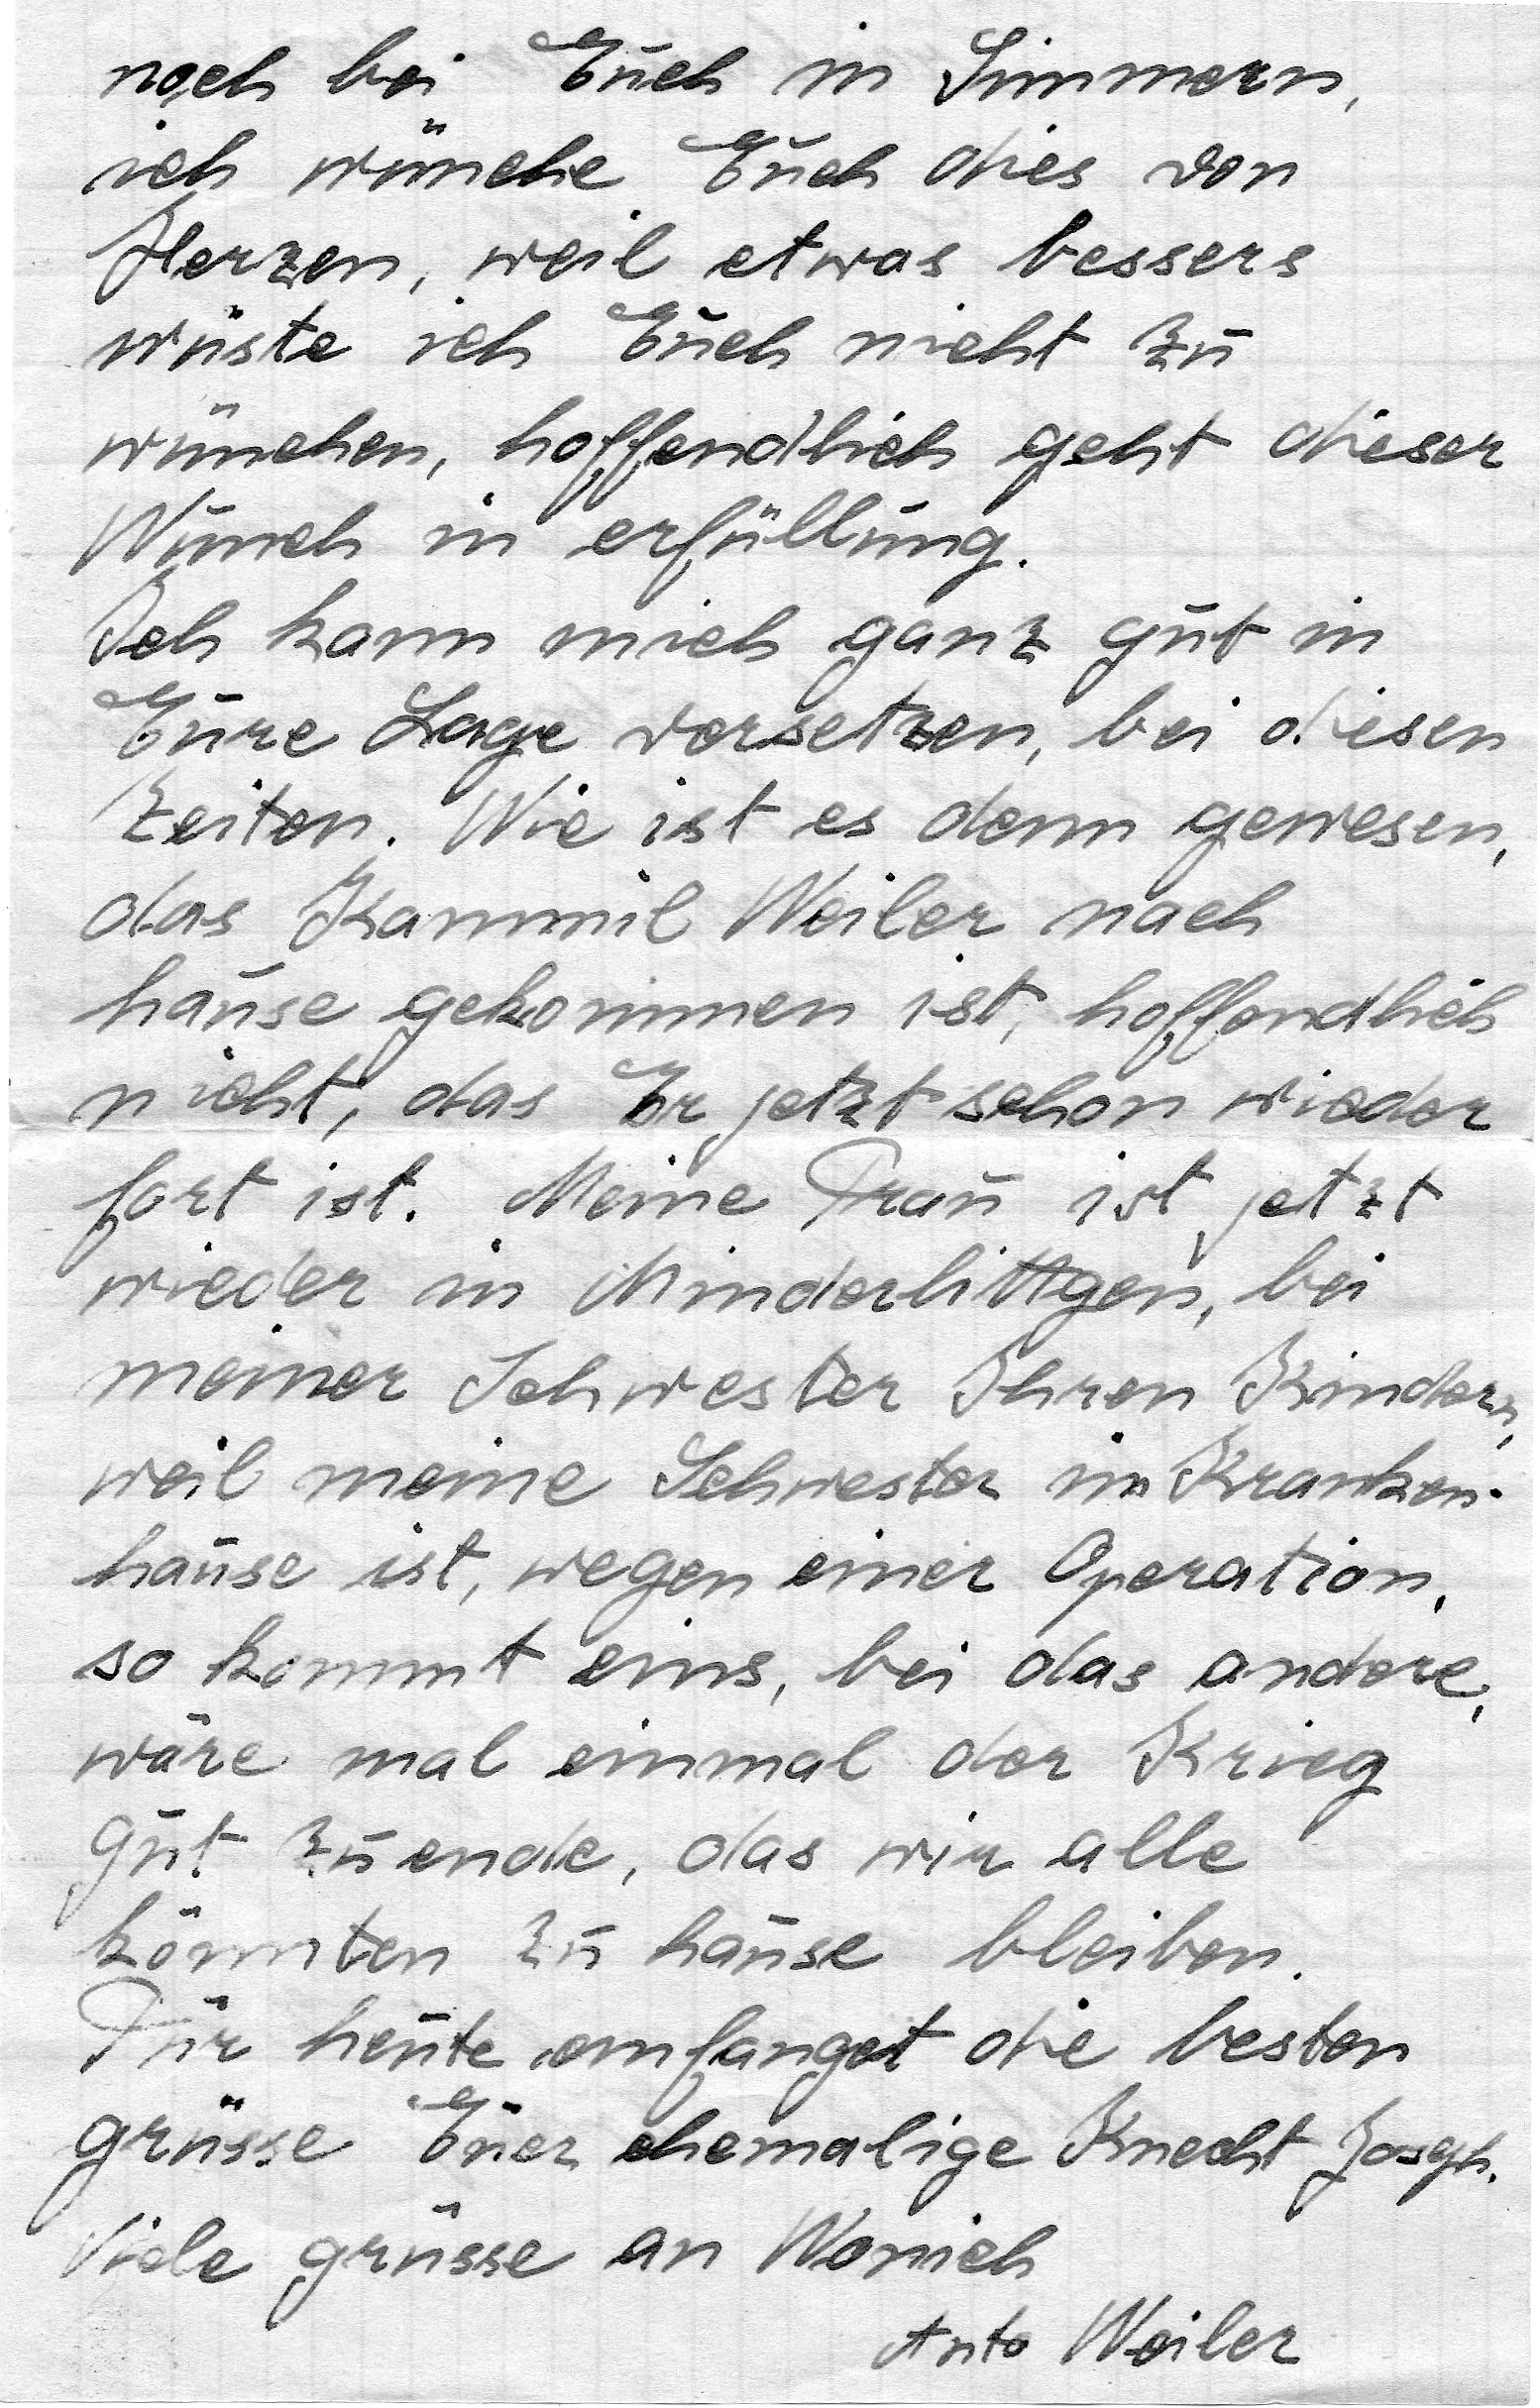 noch bei Euch in Simmern,
ich wünche Euch dies von
Herzen, weil etwas bessers
wüste ich Euch nicht zu
wünchen, hoffendlich geht dieser
Wunch in erfüllung.
Ich kann mich ganz gut in
Eure Lage versetzen, bei diesen
Zeiten. Wie ist es denn gewesen,
das Kammil Weiler nach
hause gekommen ist, hoffendlich
nicht, das Er jetzt schon wieder
fort ist. Meine Frau ist jetzt
wieder in Minderlittgen, bei
meiner Schwester Ihren Kindern,
weil meine Schwester im Kranken-
hause ist, wegen einer Operation,
so kommt eins, bei das andere,
wäre mal einmal der Krieg
gut zuende, das wir alle
könnten zu hause bleiben.
Für heute emfanget die besten
grüsse Euer ehemalige Knecht Joseph.
Viele grüsse an Wonich
Anto Weiler